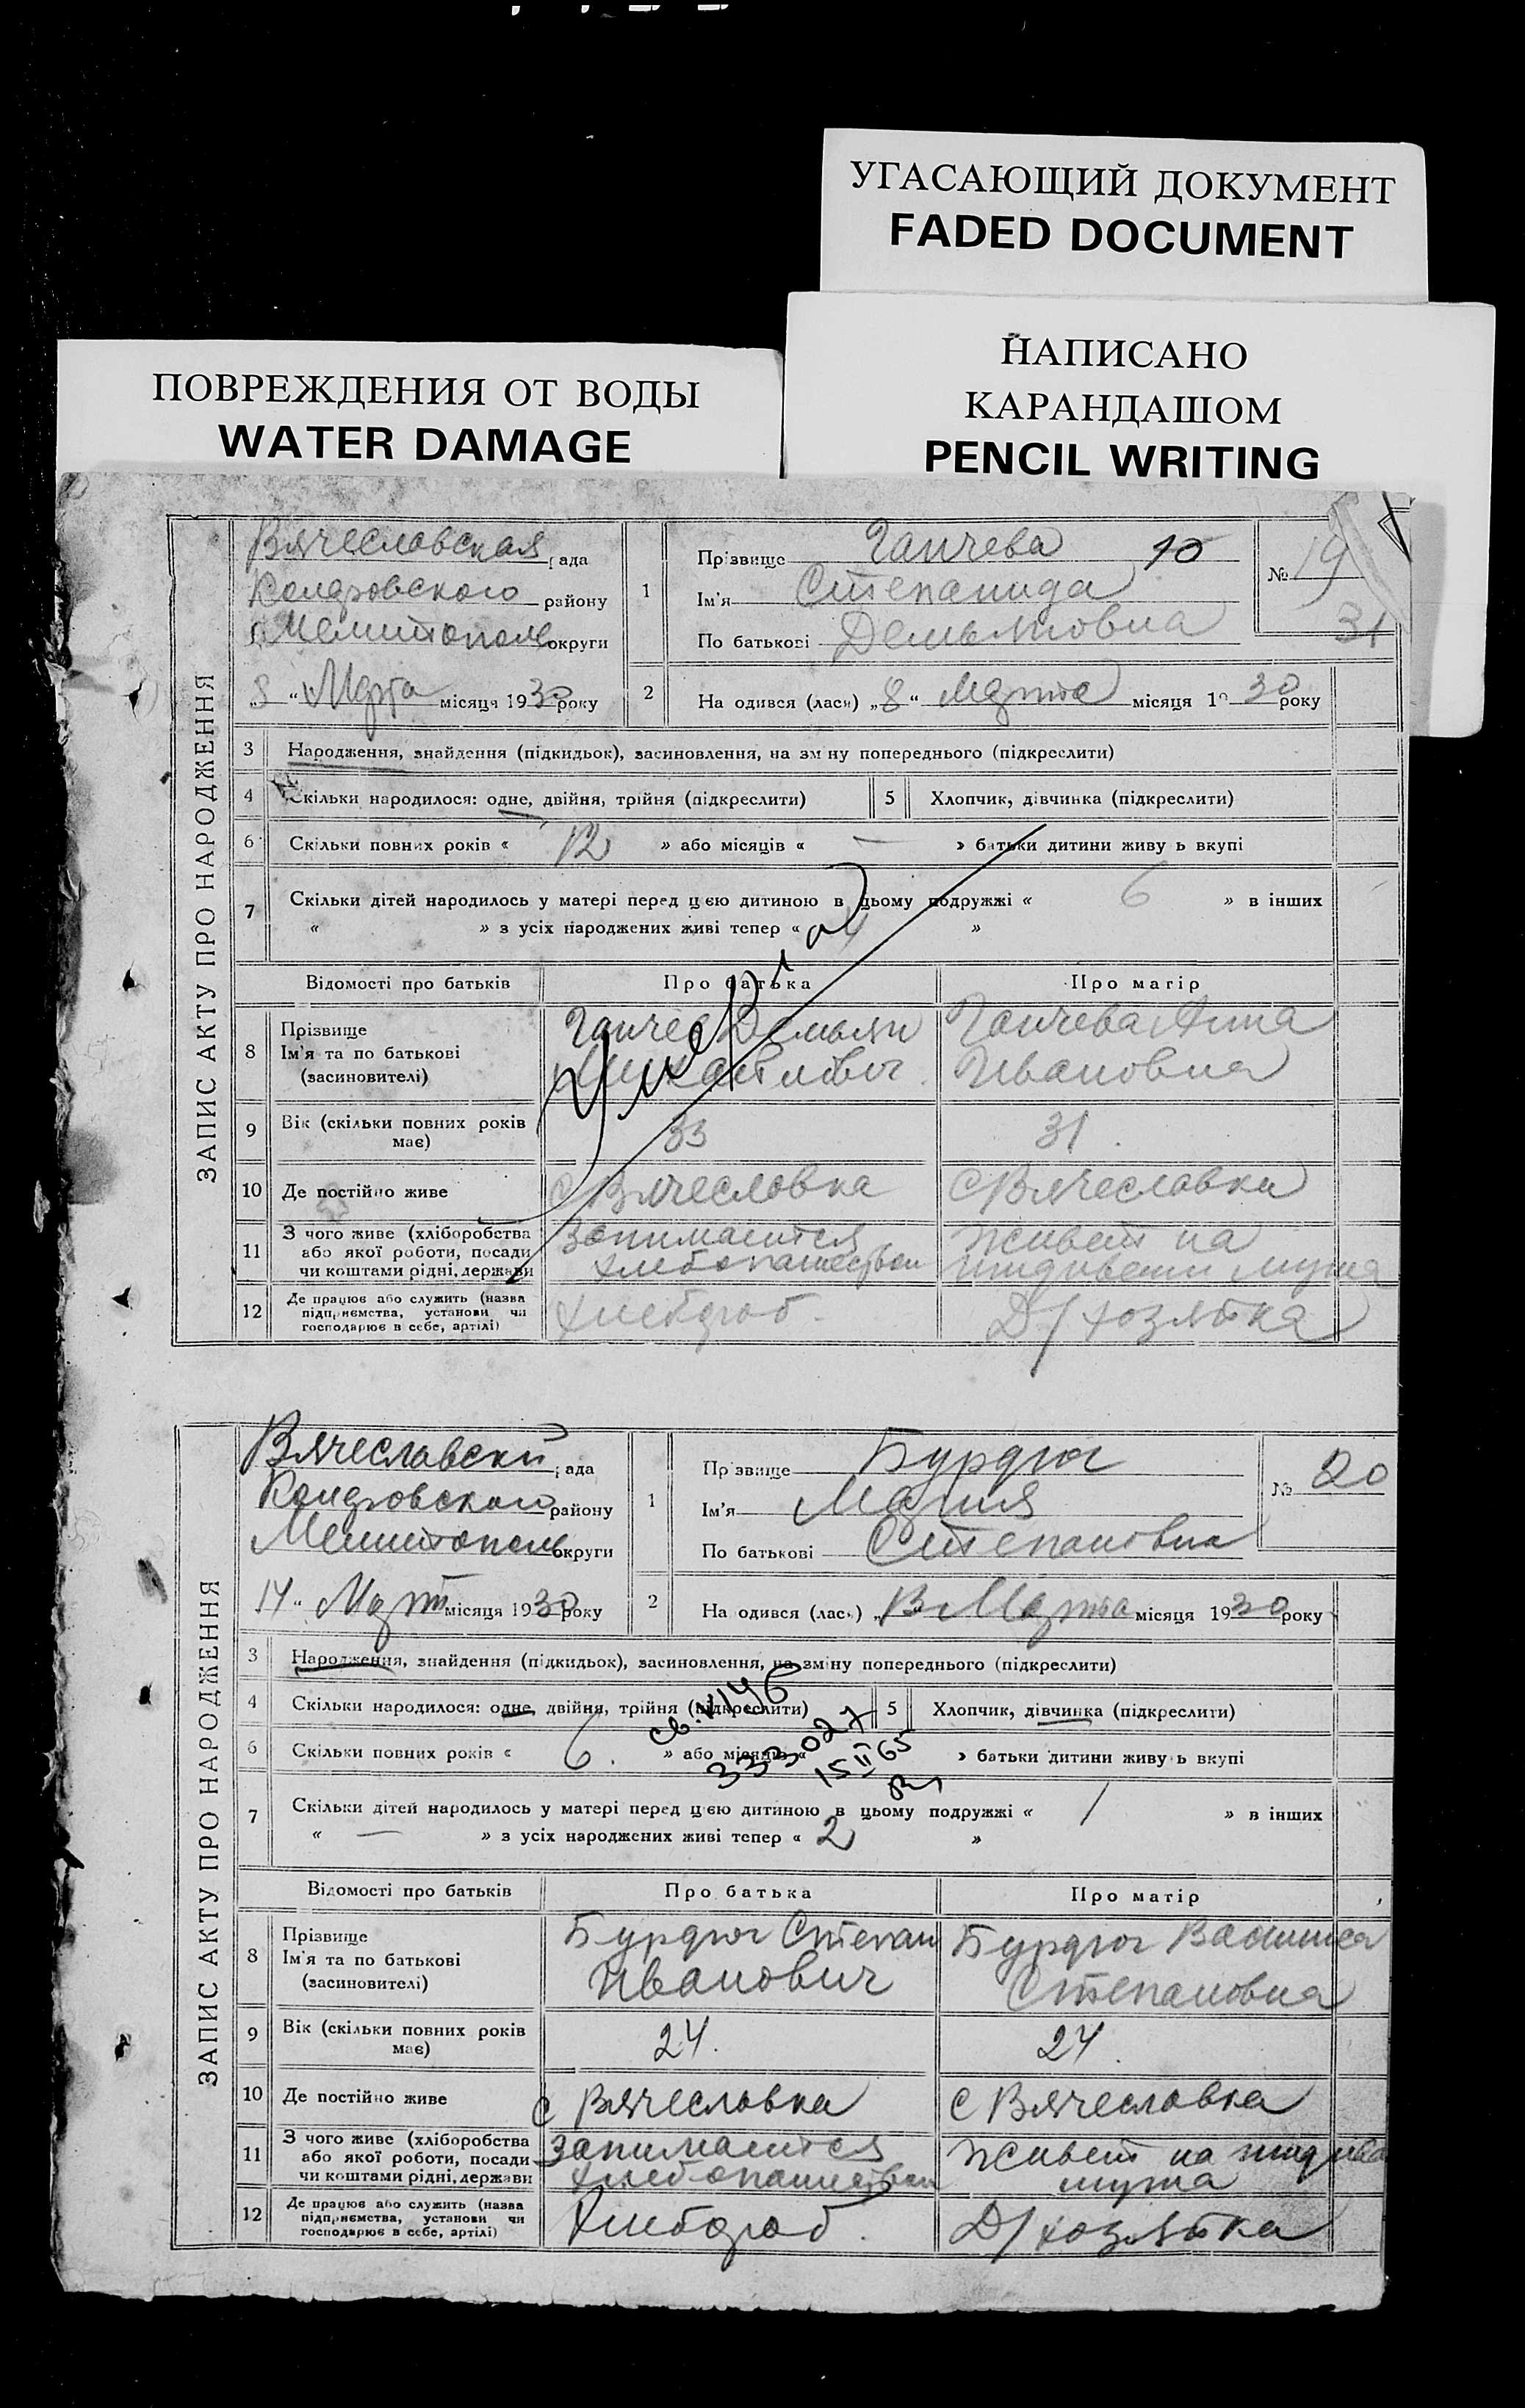 УГАСАЮЩИЙ ДОКУМЕНТ
FADED DOCUMENT
НАПИСАНО
КАРАНДАШОМ
PENCIL WRITING
ПОВРЕЖДЕНИЯ ОТ ВОДЫ
WATER DAMAGE
ЗАПИС АКТУ ПРО НАРОДЖЕННЯ
Вячеславская рада
районy
Мелитополь округи
8 " Марта місяця 1930 року
1 Прізвище Ганчева 10
Ім'я Степанида
По батькові Демьяновна
№ 19
31
2 На одився (лась) „8“ Марта місяця 1930 року
3 Народження, знайдення (підкидьок), засиновлення, на зміну попереднього (підкреслити)
4 Скільки народилося: одне, двійня, трійня (підкреслити) 5 Хлопчик, дівчинка (підкреслити)
6 Скільки повних років « 12 » або місяців « — » батьки дитини живуть вкупі
7 Скільки дітей народилось у матері перед цією дитиною в цьому подружжі « 6 » в інших
« » з усіх народжених живі тепер « 4 »
Відомості про батьків Про батька Про матір
8 Прізвище
Ім'я та по батькові
(засиновителі)
Ганчев Демьян
Ганчева Анна
Ивановна
9 Вік (скільки повних років має) 33 31
10 Де постійно живе с Вячесловка с Вячеславка
11 З чого живе (хліборобства
або якої роботи, посади
чи коштами рідні, держави
Занимается
хлебопашеством
Живет на
иждивении мужа
12 Де працює або служить (назва
підприємства, установи чи
господарює в себе, артілі)
Хлебороб. Д/хозяйка
Умерла
ЗАПИС АКТУ ПРО НАРОДЖЕННЯ
Вячеславский рада
району
Мелитополь округи
14 " Март місяця 1930 року
1 Прізвище Бурдюг
Ім'я Мария
По батькові Степановна
№ 20
2 На одився (лась) „13 Марта місяця 1930 року
3 Народження, знайдення (підкидьок), засиновлення, на зміну попереднього (підкреслити)
4 Скільки народилося: одне, двійня, трійня (підкреслити) 5 Хлопчик, дівчинка (підкреслити)
6 Скільки повних років « 6. » або місяців « » батьки дитини живуть вкупі
333027
15 II 65
7 Скільки дітей народилось у матері перед цією дитиною в цьому подружжі « 1 » в інших
« — » з усіх народжених живі тепер « 2 »
Відомості про батьків Про батька Про матір
8 Прізвище
Ім'я та по батькові
(засиновителі)
Бурдюг Степан
Иванович
Бурдюг Василиса
Степановна
9 Вік (скільки повних років має) 24. 24.
10 Де постійно живе с Вячесловка с Вячеславка
11 З чого живе (хліборобства
або якої роботи, посади
чи коштами рідні, держави
Занимается
хлебопашеством
Живет на иждиве
мужа
12 Де працює або служить (назва
підприємства, установи чи
господарює в себе, артілі)
Хлебороб. Д/хозяйка